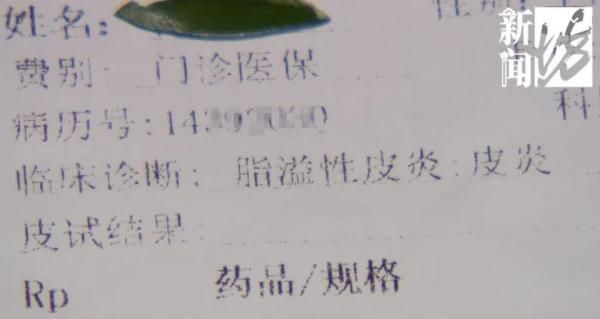 姓名:
性别:
新闻坊
费别: 门诊医保
病历号:
科
临床诊断: 脂溢性皮炎:皮炎
皮试结果:
Rp 药品/规格